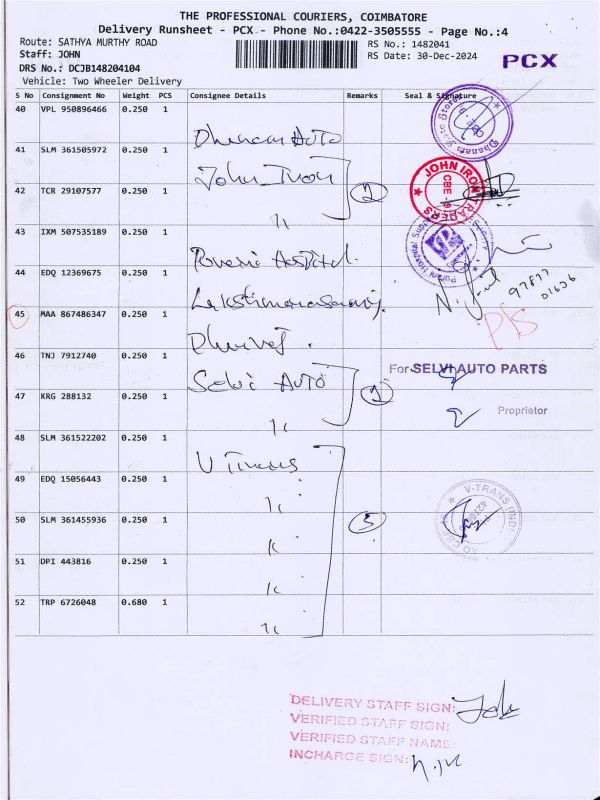 THE PROFESSIONAL COURIERS, COIMBATORE
Delivery Runsheet - PCX - Phone No.:0422-3505555 - Page No.:4
Route: SATHYA MURTHY ROAD
RS No.: 1482041
Staff: JOHN
RS Date: 30-Dec-2024
PCX
DRS No.: DCJB148204104
Vehicle: Two Wheeler Delivery
S No Consignment No Weight PCS Consignee Details Remarks Seal & Signature
40 VPL 950896466 0.250 1 Auto
41 SLM 361505972 0.250 1 John Iron
42 TCR 29107577 0.250 1 11 2
JOHN IRON TRADERS
43 IXM 507535189 0.250 1
44 EDQ 12369675 0.250 1
97877
45 MAA 867486347 0.250 1
46 TNJ 7912740 0.250 1 Selvi AUTO
For SELVI AUTO PARTS
47 KRG 288132 0.250 1
Proprietor
48 SLM 361522202 0.250 1
49 EDQ 15056443 0.250 1
50 SLM 361455936 0.250 1
51 DPI 443816 0.250 1
52 TRP 6726048 0.680 1
DELIVERY STAFF SIGN:
VERIFIED STAFF SIGN:
VERIFIED STAFF NAME:
INCHARGE SIGN: